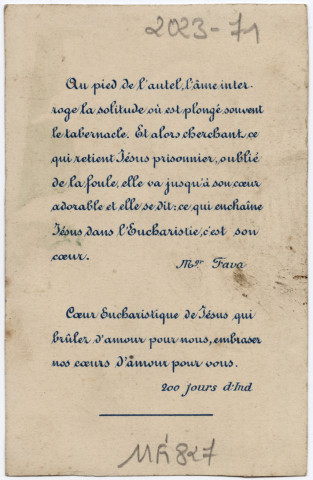 2023-71
Au pied de l'autel, l'âme inter-
roge la solitude où est plongé souvent
le tabernacle. Et alors cherchant ce
qui retient Jésus prisonnier, oublié
de la foule, elle va jusqu'à son cœur
adorable et elle se dit: ce qui enchaîne
Jésus dans l'Eucharistie, c'est son
cœur.
Mgr Fava
Cœur Eucharistique de Jésus, qui
brûlez d'amour pour nous, embraser
nos cœurs d'amour pour vous.
200 jours d'Ind
MÉ 827